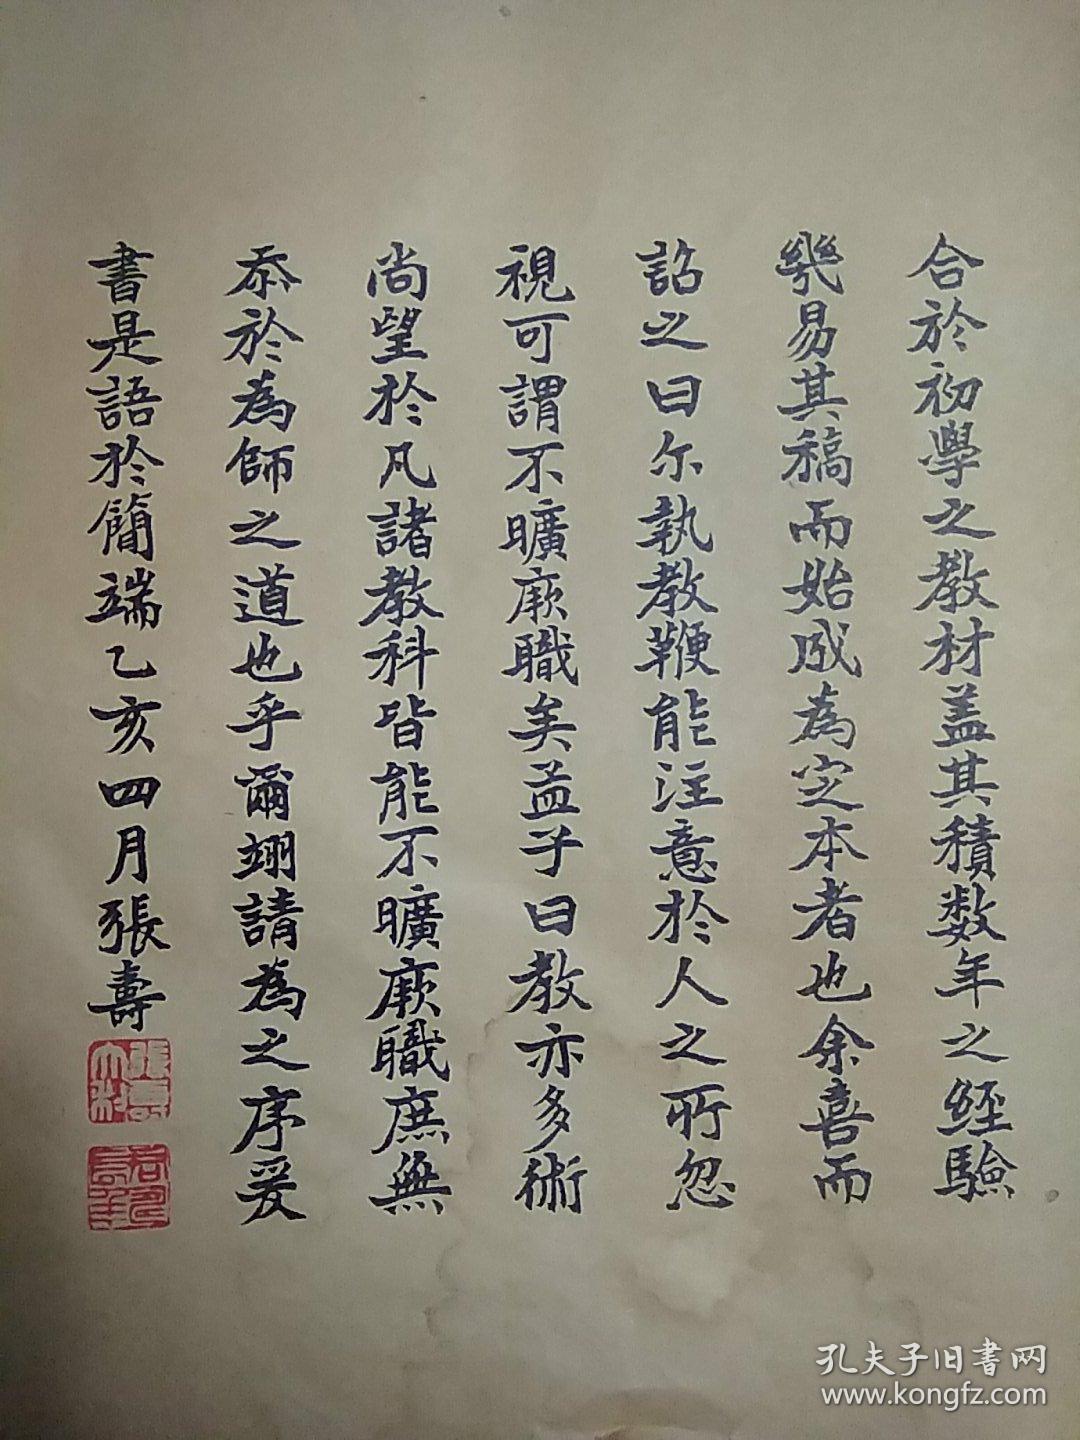 合於初學之教材盖其積数年之經驗
幾易其稿而始成為定本者也余喜而
詔之曰尔執教鞭能注意於人之所忽
視可謂不曠厥職矣孟子曰教亦多術
尚望於凡諸教科皆能不曠厥職庶無
忝於為師之道也乎爾翊請為之序爰
書是語於簡端乙亥四月張壽
孔夫子旧書网
www.kongfz.com